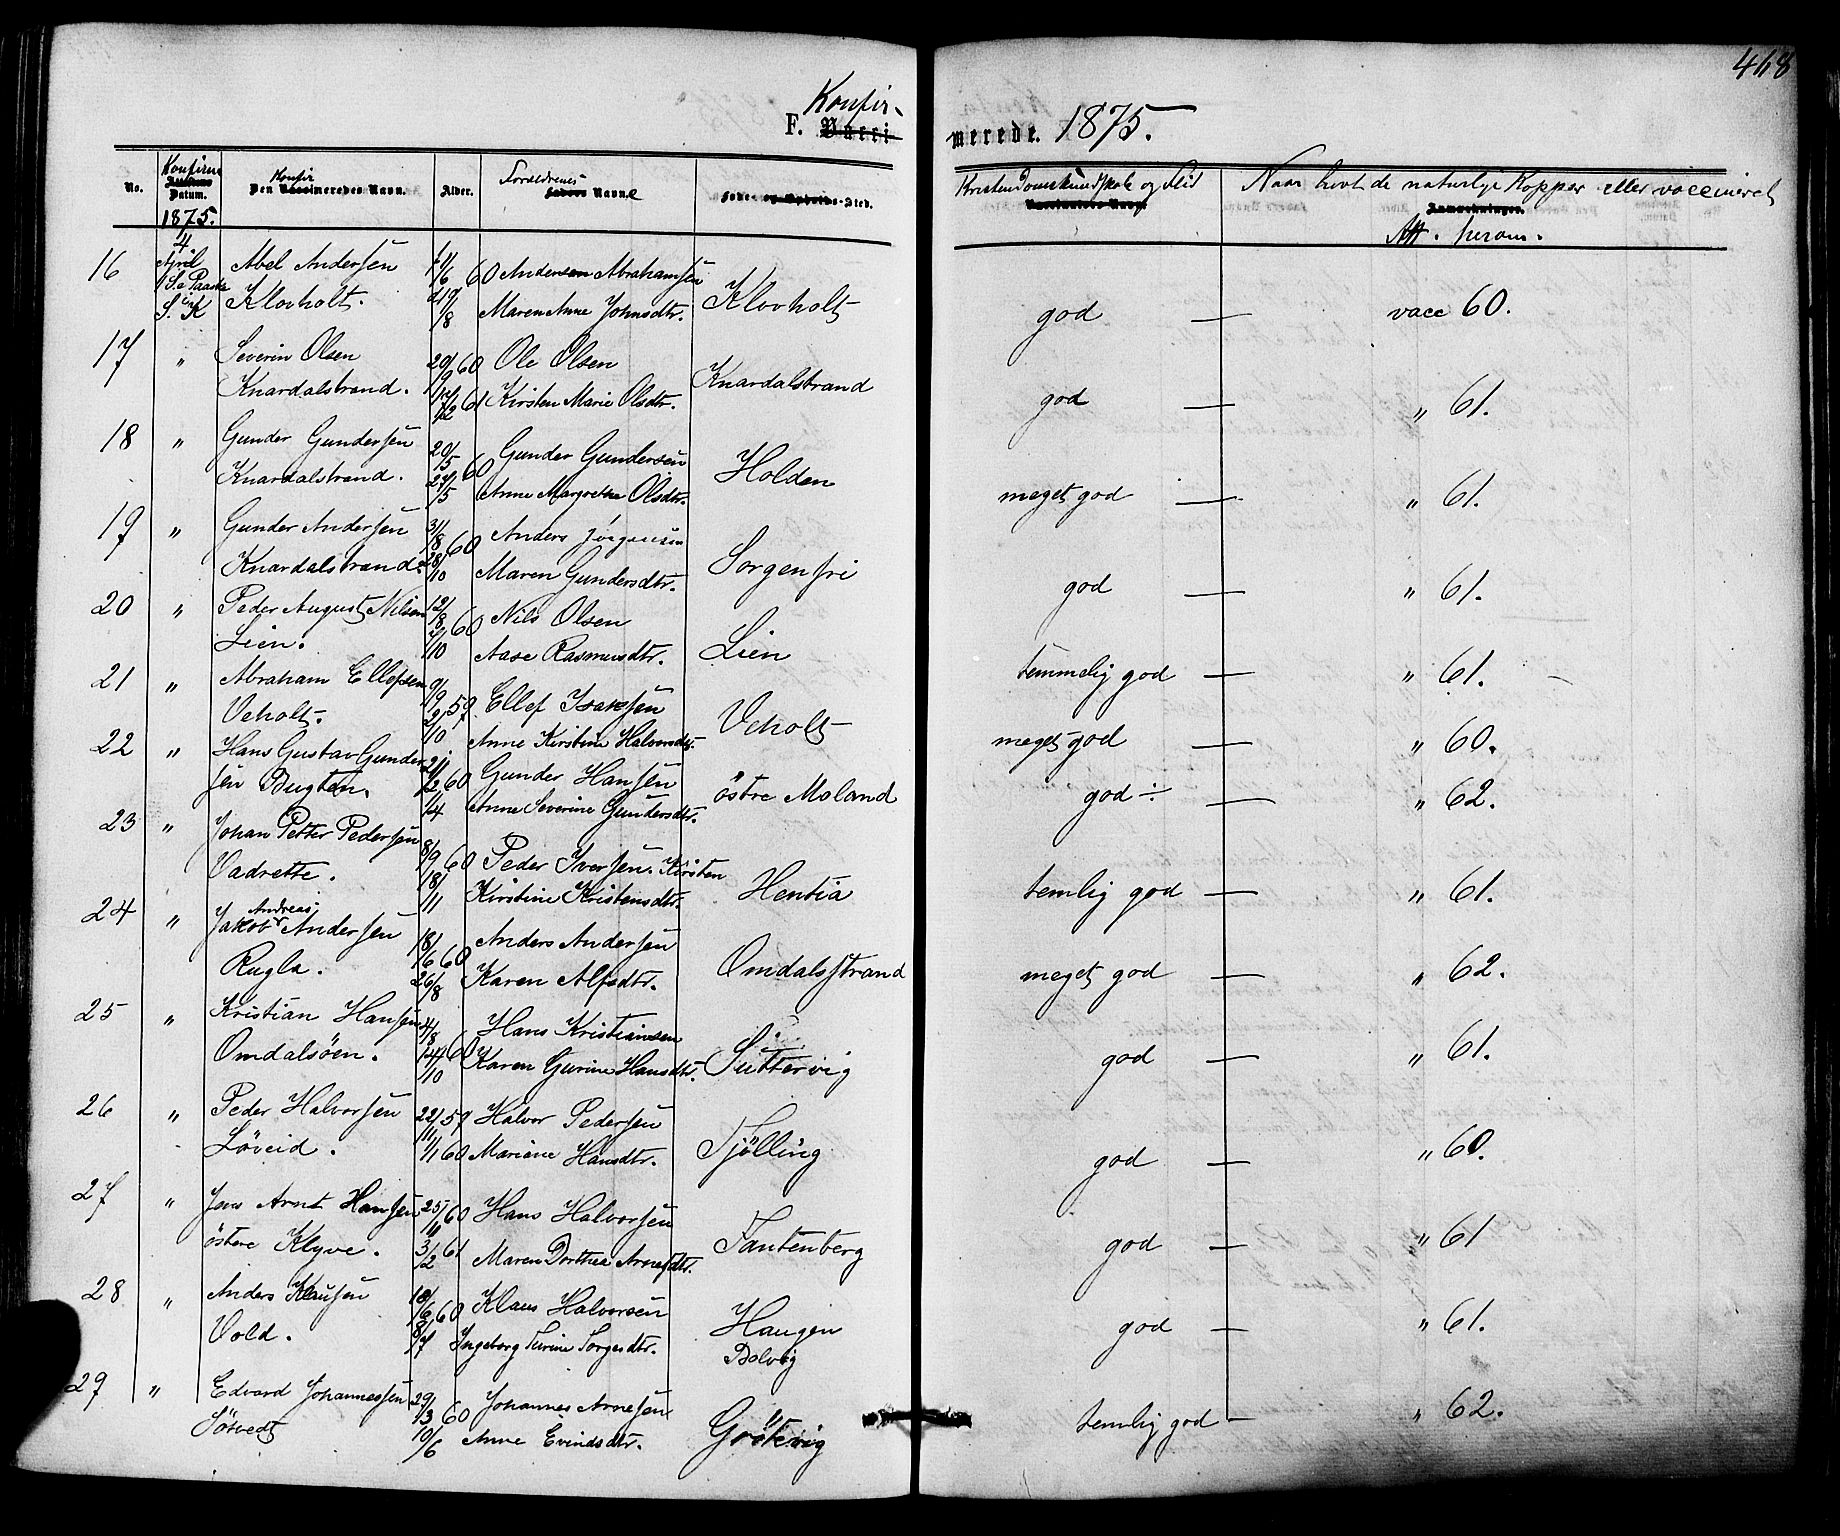 468
Konfir-
F. Vacci-
merede. 1875.
No.
Konfirm
Datum.
1875.
Konfir
Den Vaccineredes Navn.
Alder.
Forældrenes
Faders Navne
Føde- og Opholds-Sted.
Kristendomskundskab og Flid
Vaccinators Navn.
Naar havt de naturlige Kopper eller vaccineret
Anmærkninger.
16 4 April Abel Andersen 11/6 60 Andersen Abrahamsen
S. K Klovholt. 19/8 Maren Anne Johnsdtr. Klovholt god — vacc 60.
17 " Severin Olsen 20/9 60 Ole Olsen
Knardalstrand. 17/2 61 Kirsten Marie Olsdtr. Knardalstrand god — " 61.
18 " Gunder Gundersen 20/5 60 Gunder Gundersen
Knardalstrand. 27/5 Anne Margrethe Olsdtr. Holden meget god — " 61.
19 " Gunder Andersen 31/8 60 Anders Jörgensen
Knardalstrand. 28/10 Maren Gundersdtr. Sorgenfri god — " 61.
20 " Peder August Nilsen 12/8 60 Nils Olsen
Lien. 7/10 Aase Rasmusdtr. Lien temmelig god — " 61.
21 " Abraham Ellefsen 9/9 59 Ellef Isaksen
Veholt. 2/10 Anne Kirstine Halvorsdtr. Veholt meget god — " 60.
22 " Hans Gustav Gunder- 60 Gunder Hansen
sen Bugten. 1/4 Anne Severine Gundersdtr. östre Moland god ÷ — " 62.
23 " Johan Petter Pedersen 8/9 60 Peder Iversen. Kirsten
Vadrette. 18/11 Kirstine Kristensdtr. Hentia temlig god — " 61.
Andreas
24 " Jakob Andersen 18/6 60 Anders Andersen
Rugla. 26/8 Karen Alfsdtr. Omdalsstrand meget god — " 62.
25 " Kristian Hansen 4/8 Hans Kristiansen
Omdalsöen. 14/10 60 Karen Gurine Hansdtr. Suttervig god — " 61.
26 " Peder Halvorsen 22/11 59 Halvor Pedersen
Löveid. 1/1 60 Mariane Hansdtr. Tjölling god — " 60.
27 " Jens Arnt Hansen 25/11 60 Hans Halvorsen
östere Klyve. 3/2 61 Maren Dorthea Arnesdtr. Tantenberg god — " 61
28 " Anders Klausen 18/6 60 Klaus Halvorsen
Vold. 8/7 Ingeborg Turine Torgersdtr. Haugen
Bolvig god — " 61.
29 " Edvard Johannessen 29/3 60 Johannes Arnesen
Sötvedt 10/6 Anne Evindsdtr. Grötsvig temlig god — " 62.